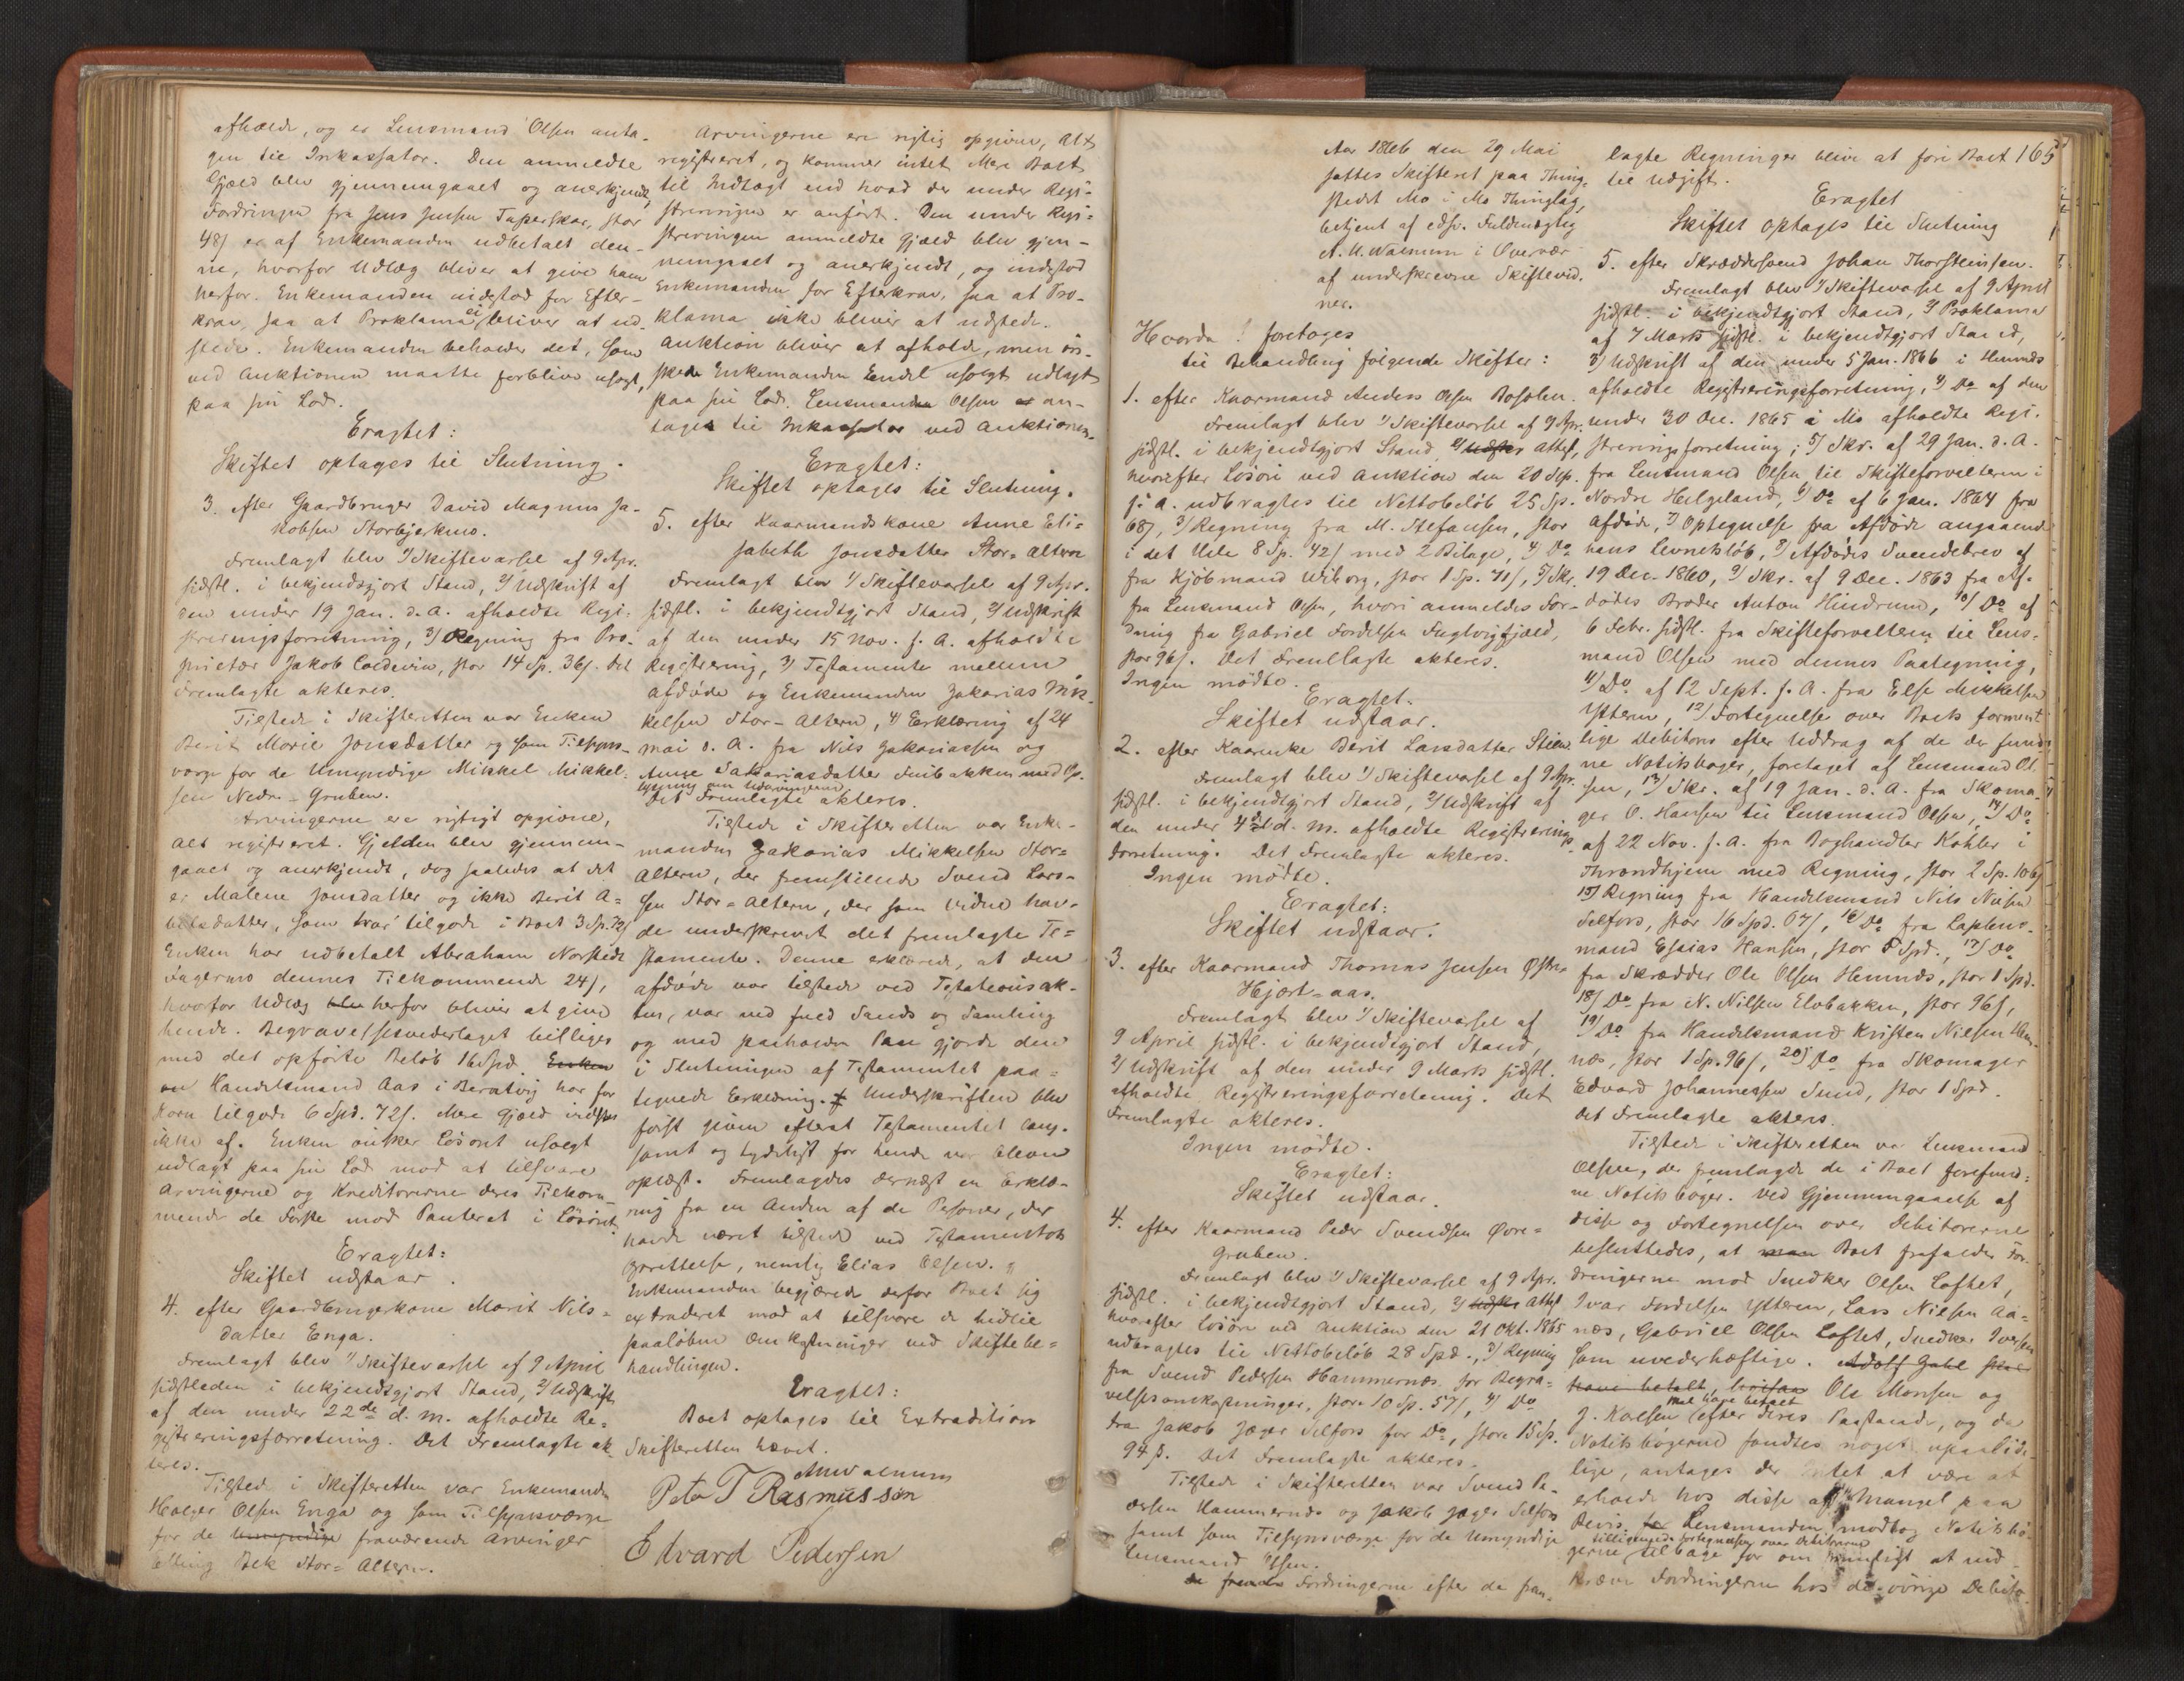 afholde, og er Lensmand Olsen anta-
gen til Inkassator. Den anmeldte
Gjæld blev gjennemgaaet og anerkjendt,
Fordringen fra Jens Jensen Taperskar, stor
48/ er af Enkemanden udbetalt den-
ne, hvorfor Udlæg bliver at give ham
herfor. Enkemanden indestod for Efter-
krav, saa at Proklama ei bliver at ud-
stede. Enkemanden beholder det, som
ved Auktionen maatte forblive usolgt,
paa sin Lod.
Eragtet:
Skiftet optages til Slutning.
3. efter Gaardbruger David Magnus Ja-
kobsen Storbjerkmo.
Fremlagt blev 1/ Skiftevarsel af 9 Apr.
sidstl. i bekjendtgjort Stand, 2/ Udskrift af
den under 19 Jan. d. A. afholdte Regi-
streringsforretning, 3/ Regning fra Pro-
prietær Jakob Coldevin, stor 14 Sp. 36/. Det
Fremlagte akteres.
Tilstede i Skifteretten var Enken
Berit Marie Jonsdatter og som Tilsyns-
værge for de Umyndige Mikkel Mikkel-
sen Nedre-Gruben.
Arvingerne ere rigtigt opgivne,
Alt registreret. Gjelden blev gjennem-
gaaet og anerkjendt, dog saaledes at det
er Malene Jonsdatter og ikke Berit A-
belsdatter, som har tilgode i Boet 3 Sp.
Enken har udbetalt Abraham Norstede
dennes Tilkommende 24/,
hvorfor Udlæg blev herfor bliver at give
hende. Begravelsesvederlaget billiges
med det opførte Beløb 16 Spd. Enken
en Handelsmand Aas i Beratvig har for
Korn tilgode 6 Spd. 72/. Mere Gjæld vidstes
ikke af. Enken ønsker Løsøret usolgt
udlagt paa sin Lod mod at tilsvare
Arvingerne og Kreditorerne deres Tilkom-
mende de Første mod Panteret i Løsøret.
Eragtet:
Skiftet udstaar.
4. efter Gaardbrugerkone Marit Nils-
datter Enga.
Fremlagt blev 1/ Skiftevarsel af 9 April
sidstleden i bekjendtgjort Stand, 2/ Udskrift
af den under 22de d. M. afholdte Re-
gistreringsforretning. Det Fremlagte ak-
teres.
Tilstede i Skifteretten var Enkemanden
Holger Olsen Enga og som Tilsynsværge
for de Umyndige fraværende Arvinger
Elling Bek Stor-Altern.
Arvingerne ere rigtig opgivne, Alt
registreret, og kommer intet Mere Boet
til Indtægt end hvad der under Regi-
streringen er anført. Den under Regi-
streringen anmeldte Gjæld blev gjen-
nemgaaet og anerkjendt, og indestod
Enkemanden for Efterkrav, saa at Pro-
klama ikke bliver at udstede.
Auktion bliver at afholde, men øn-
skede Enkemanden Endel usolgt udlagt
paa sin Lod. Lensmanden Olsen er an-
tages til Inkassator ved Auktionen.
Eragtet:
Skiftet optages til Slutning.
5. efter Kaarmandskone Anne Eli-
sabeth Jonsdatter Stor-Altern
Fremlagt blev 1/ Skiftevarsel af 9 Apr.
sidstl. i bekjendtgjort Stand, 2/ Udskrift
af den under 15 Nov. f. A. afholdte
Registrering, 3/ Testamente mellem
Afdøde og Enkemanden Zakarias Mik-
kelsen Stor-Altern, 4/ Erklæring af 24
Mai d. A. fra Nils Zakariassen og
Anne Zakariasdatter Finbakken med Op-
lysning om Udarvingerne
Det Fremlagte akteres.
Tilstede i Skifteretten var Enke-
manden Zakarias Mikkelsen Stor-
Altern, der fremstillede Svend Lars-
sen Stor-Altern, der som Vidne hav-
de underskrevet det fremlagte Te-
stamente. Denne erklærede, at den
afdøde var tilstede ved Testationsak-
ten, var ved fuld Sands og Samling
og med paaholden Pen gjorde den
i Slutningen af Testamentet paa-
tegnede Erklæring. Underskriften blev
først given efterat Testamentet lang-
somt og tydeligt for hende var bleven
oplæst. Fremlagdes dernæst en Erklæ-
ring fra en Anden af de Personer, der
havde været tilstede ved Testamentets
Oprettelse, nemlig Elias Olsen.
Enkemanden begjærede derfor Boet sig
extraderet mod at tilsvare de hidtil
paaløbne Omkostninger ved Skiftebe-
handlingen.
Eragtet:
Boet optages til Extradition
Skifteretten hævet.
AMWalnum
Peter T Rasmussen
Edvard Pedersen
165
Aar 1866 den 29 Mai
sattes Skifteret paa Thing-
stedet Mo i Mo Thinglag,
betjent af edsv. Fuldmægtig
A. M. Walnum i Overvær
af underskrevne Skiftevid-
ner.
Hvorda! foretages
til Behandling følgende Skifter:
1. efter Kaarmand Anders Olsen Bosolen.
Fremlagt blev 1/ Skiftevarsel af 9 Apr.
sidstl. i bekjendtgjort Stand, 2/ Udskr Attest,
hvorefter Løsøre ved Auktion den 20 Sep.
f. A. udbragtes til Nettobeløb 25 Sp.
68/, 3/ Regning fra M. Stefansen, stor
i det Hele 8 Sp. 42/ med 2 Bilage, 4/ Do
fra Kjøbmand Wiborg, stor 1 Sp. 71/, 5/ Skr.
fra Lensmand Olsen, hvori anmeldes For-
dring fra Gabriel Fordelsen Fuglvigfjeld,
stor 96/. Det Fremlagte akteres.
Ingen mødte.
Eragtet.
Skiftet udstaar.
2. efter Kaarenke Berit Larsdatter Stien.
Fremlagt blev 1/ Skiftevarsel af 9 Apr.
sidstl. i bekjendtgjort Stand, 2/ Udskrift af
den under 4de d. M. afholdte Registrerings-
forretning. Det Fremlagte akteres.
Ingen mødte.
Eragtet:
Skiftet udstaar.
3. efter Kaarmand Thomas Jensen Østre-
Hjort-aas.
Fremlagt blev 1/ Skiftevarsel af
9 April sidstl. i bekjendtgjort Stand,
2/ Udskrift af den under 9 Marts sidstl.
afholdte Registreringsforretning. Det
Fremlagte akteres.
Ingen mødte.
Eragtet:
Skiftet udstaar.
4. efter Kaarmand Peder Svendsen Øvre-
Gruben.
Fremlagt blev 1/ Skiftevarsel af 9 Apr.
sidstl. i bekjendtgjort Stand, 2/ Udskr Attest
hvorefter Løsøre ved Auktion den 21 Okt. 1865
udbragtes til Nettobeløb 28 Spd., 3/ Regning
fra Svend Pedersen Hammernæs for Begra-
velsesomkostninger, stor 10 Sp. 57/, 4/ Do
fra Jakob Jæger Selfors for Do, stor 15 Sp.
94 β. Det Fremlagte akteres.
Tilstede i Skifteretten var Svend Pe-
dersen Hammernæs og Jakob Jæger Selfors
samt som Tilsynsværge for de Umyndige
Lensmand Olsen.
Fordringerne efter de frem-
lagte Regninger blive at føre Boet
til Udgift.
Eragtet
Skiftet optages til Slutning
5. efter Skræddersvend Johan Thorsteinsen.
Fremlagt blev 1/ Skiftevarsel af 9 April
sidstl. i bekjendtgjort Stand, 2/ Proklama
af 7 Marts sidstl. i bekjendtgjort Stand,
3/ Udskrift af den under 5 Jan. 1866 i Hemnæs
afholdte Registreringsforretning, 4/ Do af den
under 30 Dec. 1865 i Mo afholdte Regi-
streringsforretning; 5/ Skr. af 29 Jan. d. A.
fra Lensmand Olsen til Skifteforvalteren i
Nordre Helgeland, 6/ Do af 6 Jan. 1864 fra
Afdøde, 7/ Optegnelse fra Afdøde angaaende
hans Levnetsløb, 8/ Afdødes Svendebrev af
19 Dec. 1860, 9/ Skr. af 9 Dec. 1863 fra Af-
dødes Broder Anton Hindrum, 10/ Do af
6 Febr. sidstl. fra Skifteforvalteren til Lens-
mand Olsen med dennes Paategning,
11/ Do af 12 Sept. f. A. fra Else Mikkelsen
Ytteren, 12/ Fortegnelse over Boets forment-
lige Debitorer efter Uddrag af de der fund-
ne Notitsbøger, foretaget af Lensmand Ol-
sen, 13/ Skr. af 19 Jan. d. A. fra Skoma-
ger O. Hansen til Lensmand Olsen, 14/ Do
af 22 Nov. f. A. fra Boghandler Kohler i
Throndhjem med Regning, stor 2 Sp. 106/
15/ Regning fra Handelsmand Nils Nilsen
Selfors, stor 16 Spd. 67/, 16/ Do fra Laplens-
mand Esaias Hansen, stor 5 Spd., 17/ Do
fra Skrædder Ole Olsen Hemnæs, stor 1 Spd.
18/ Do fra N. Nilsen Elvbakken, stor 96/,
19/ Do fra Handelsmand Kristen Nilsen Hem-
næs, stor 1 Sp. 96/, 20/ Do fra Skomager
Edvard Johannessen Sund, stor 1 Spd.
Det Fremlagte akteres.
Tilstede i Skifteretten var Lensmand
Olsen, der fremlagde de i Boet forefund-
ne Notitsbøger. Ved Gjennemgaaelse af
disse og Fortegnelsen over Debitorerne
besluttedes, at man Boet frafalder For-
dringerne mod Snedker Olsen Loftet,
Ivar Fordelsen Ytteren, Lars Nilsen Aa-
næs, Gabriel Olsen Loftet, Snedker Iversen
som uvederhæftige. Adolf Gabl
have betalt, Ole Monsen og
skal have betalt
J. Kolsen efter deres Paastand, og da
Notitsbøgerne fandtes noget upaalide-
lige, antages der Intet at være at
erholde hos disse af Mangel paa
Bevis. for Lensmanden modtog Notitsbø-
tilligemed Fortegnelsen over Debitorerne
gerne tilbage for om muligt at ind-
kræve Fordringerne hos de øvrige Debito-